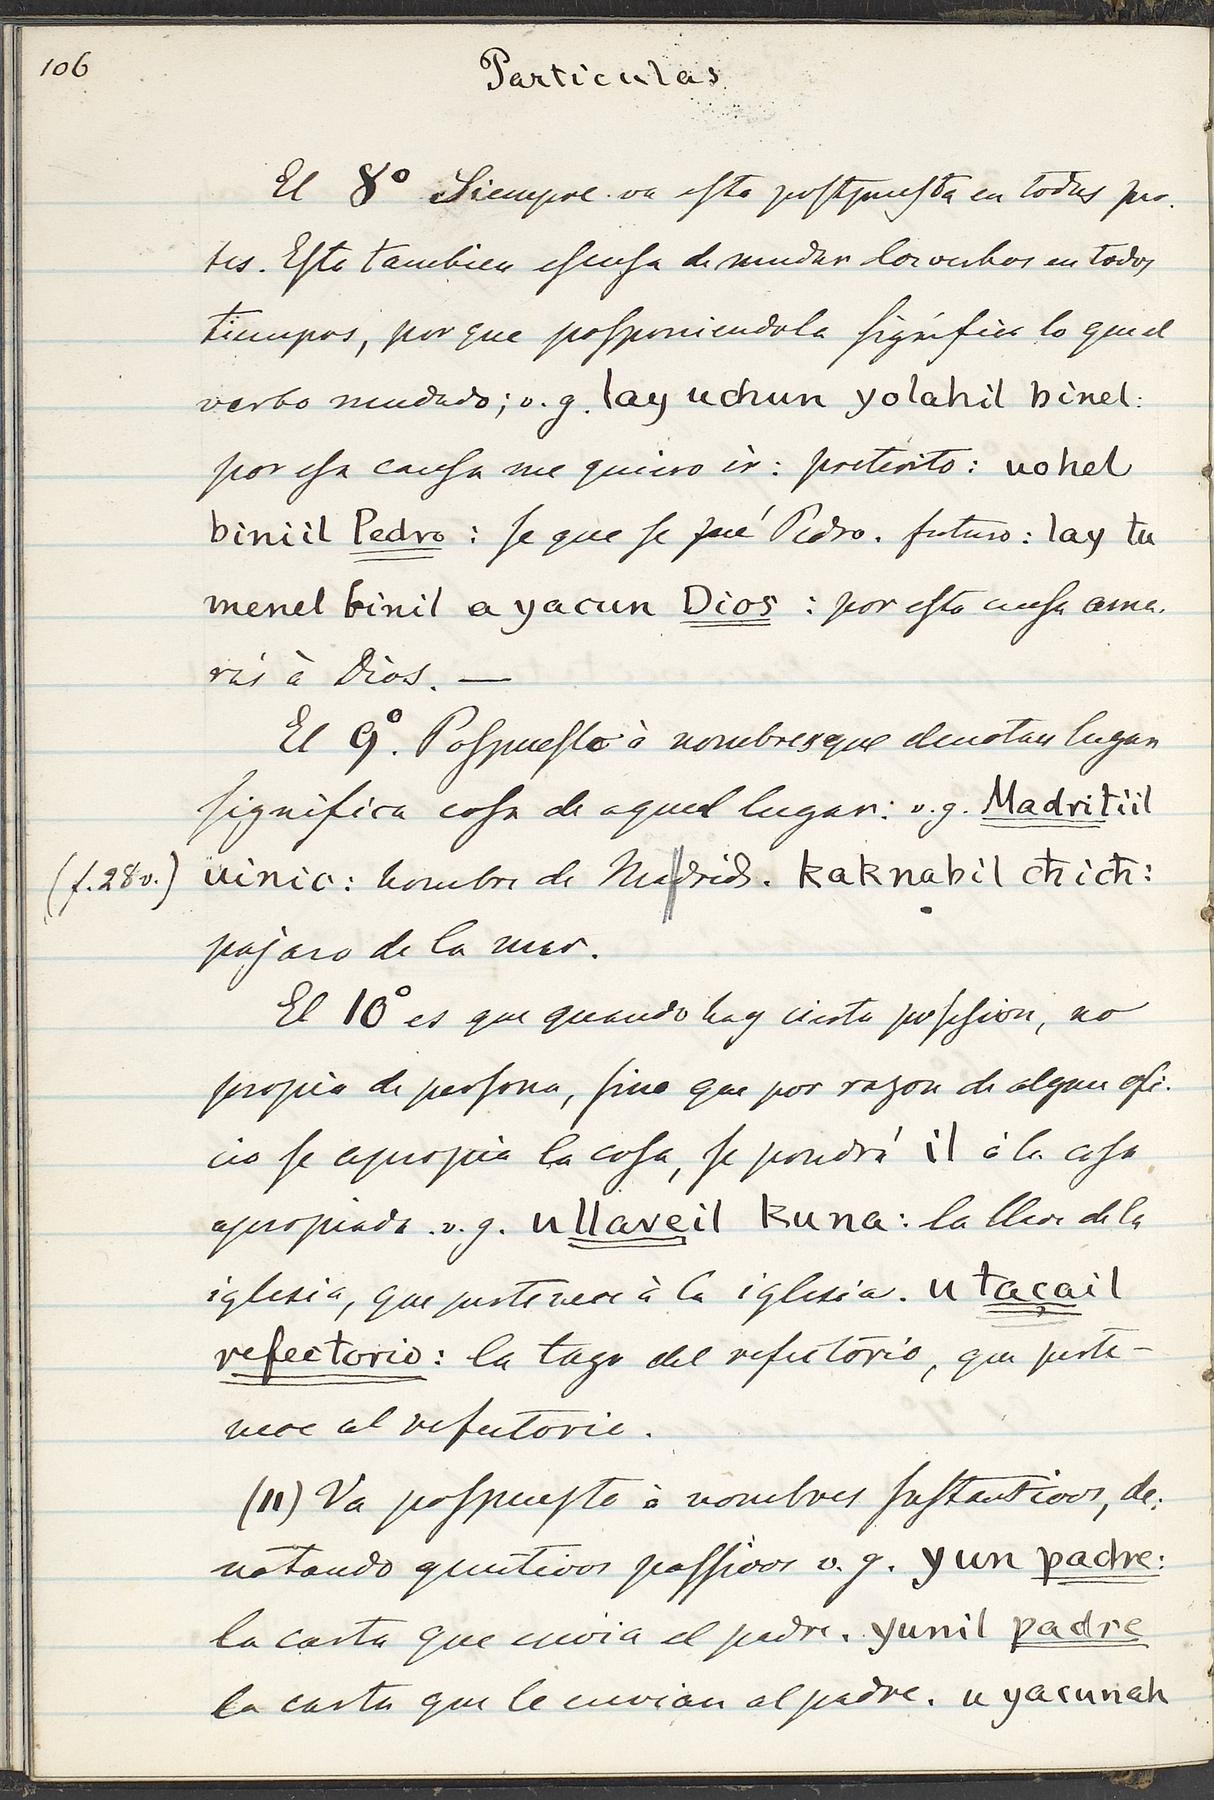 106
Particulas
El 8º Siempre va esta postpuesta en todas par-
tes. Esta tambien escusa de mudar los verbos en todos
tiempos, porque posponiendola significa lo que el
verbo mudado; v. g. lay uchun yolahil binel:
por esa causa me quiero ir: preterito: uohel
biniil Pedro: se que se fué Pedro. futuro: lay tu
menel binil a yacun Dios: por esta causa ama-
rás à Dios. —
El 9º. Pospuesta à nombres que denotan lugar
significa cosa de aquel lugar: v. g. Madritiil
(f. 28 v.) uinic: hombre de Madrid. kaknabil chich:
pajaro de la mar.
El 10º es que quando hay cierta possesion, no
propia de persona, sino que por razon de algun ofi-
cio se apropia la cosa, se pondrá il á la cosa
apropiada. v. g. ullaveil kuna: la llave de la
iglesia, que pertenece à la iglesia. u taçail
refectorio: la taza del refectorio, que perte-
nece al refectorio.
(11) Va pospuesta à nombres sustantivos, de-
notando genitivos passivos v. g. yun padre:
la carta que envia el padre. yunil padre
la carta que le envian al padre. u yacunah